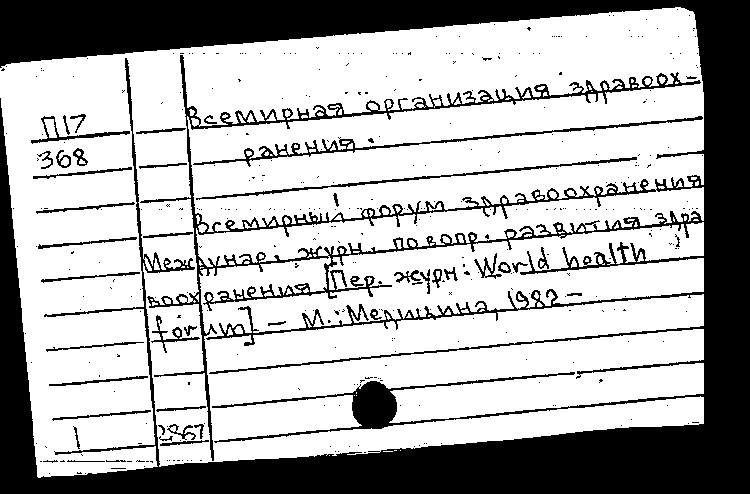 П17
368
Всемирная организация здравоох-
ранения.
Всемирный форум здравоохранения
Междунар. журн. по вопр. развития здра
воохранения [Пер. журн: World health
forum] — М.: Медицина, 1982 —
1 2867